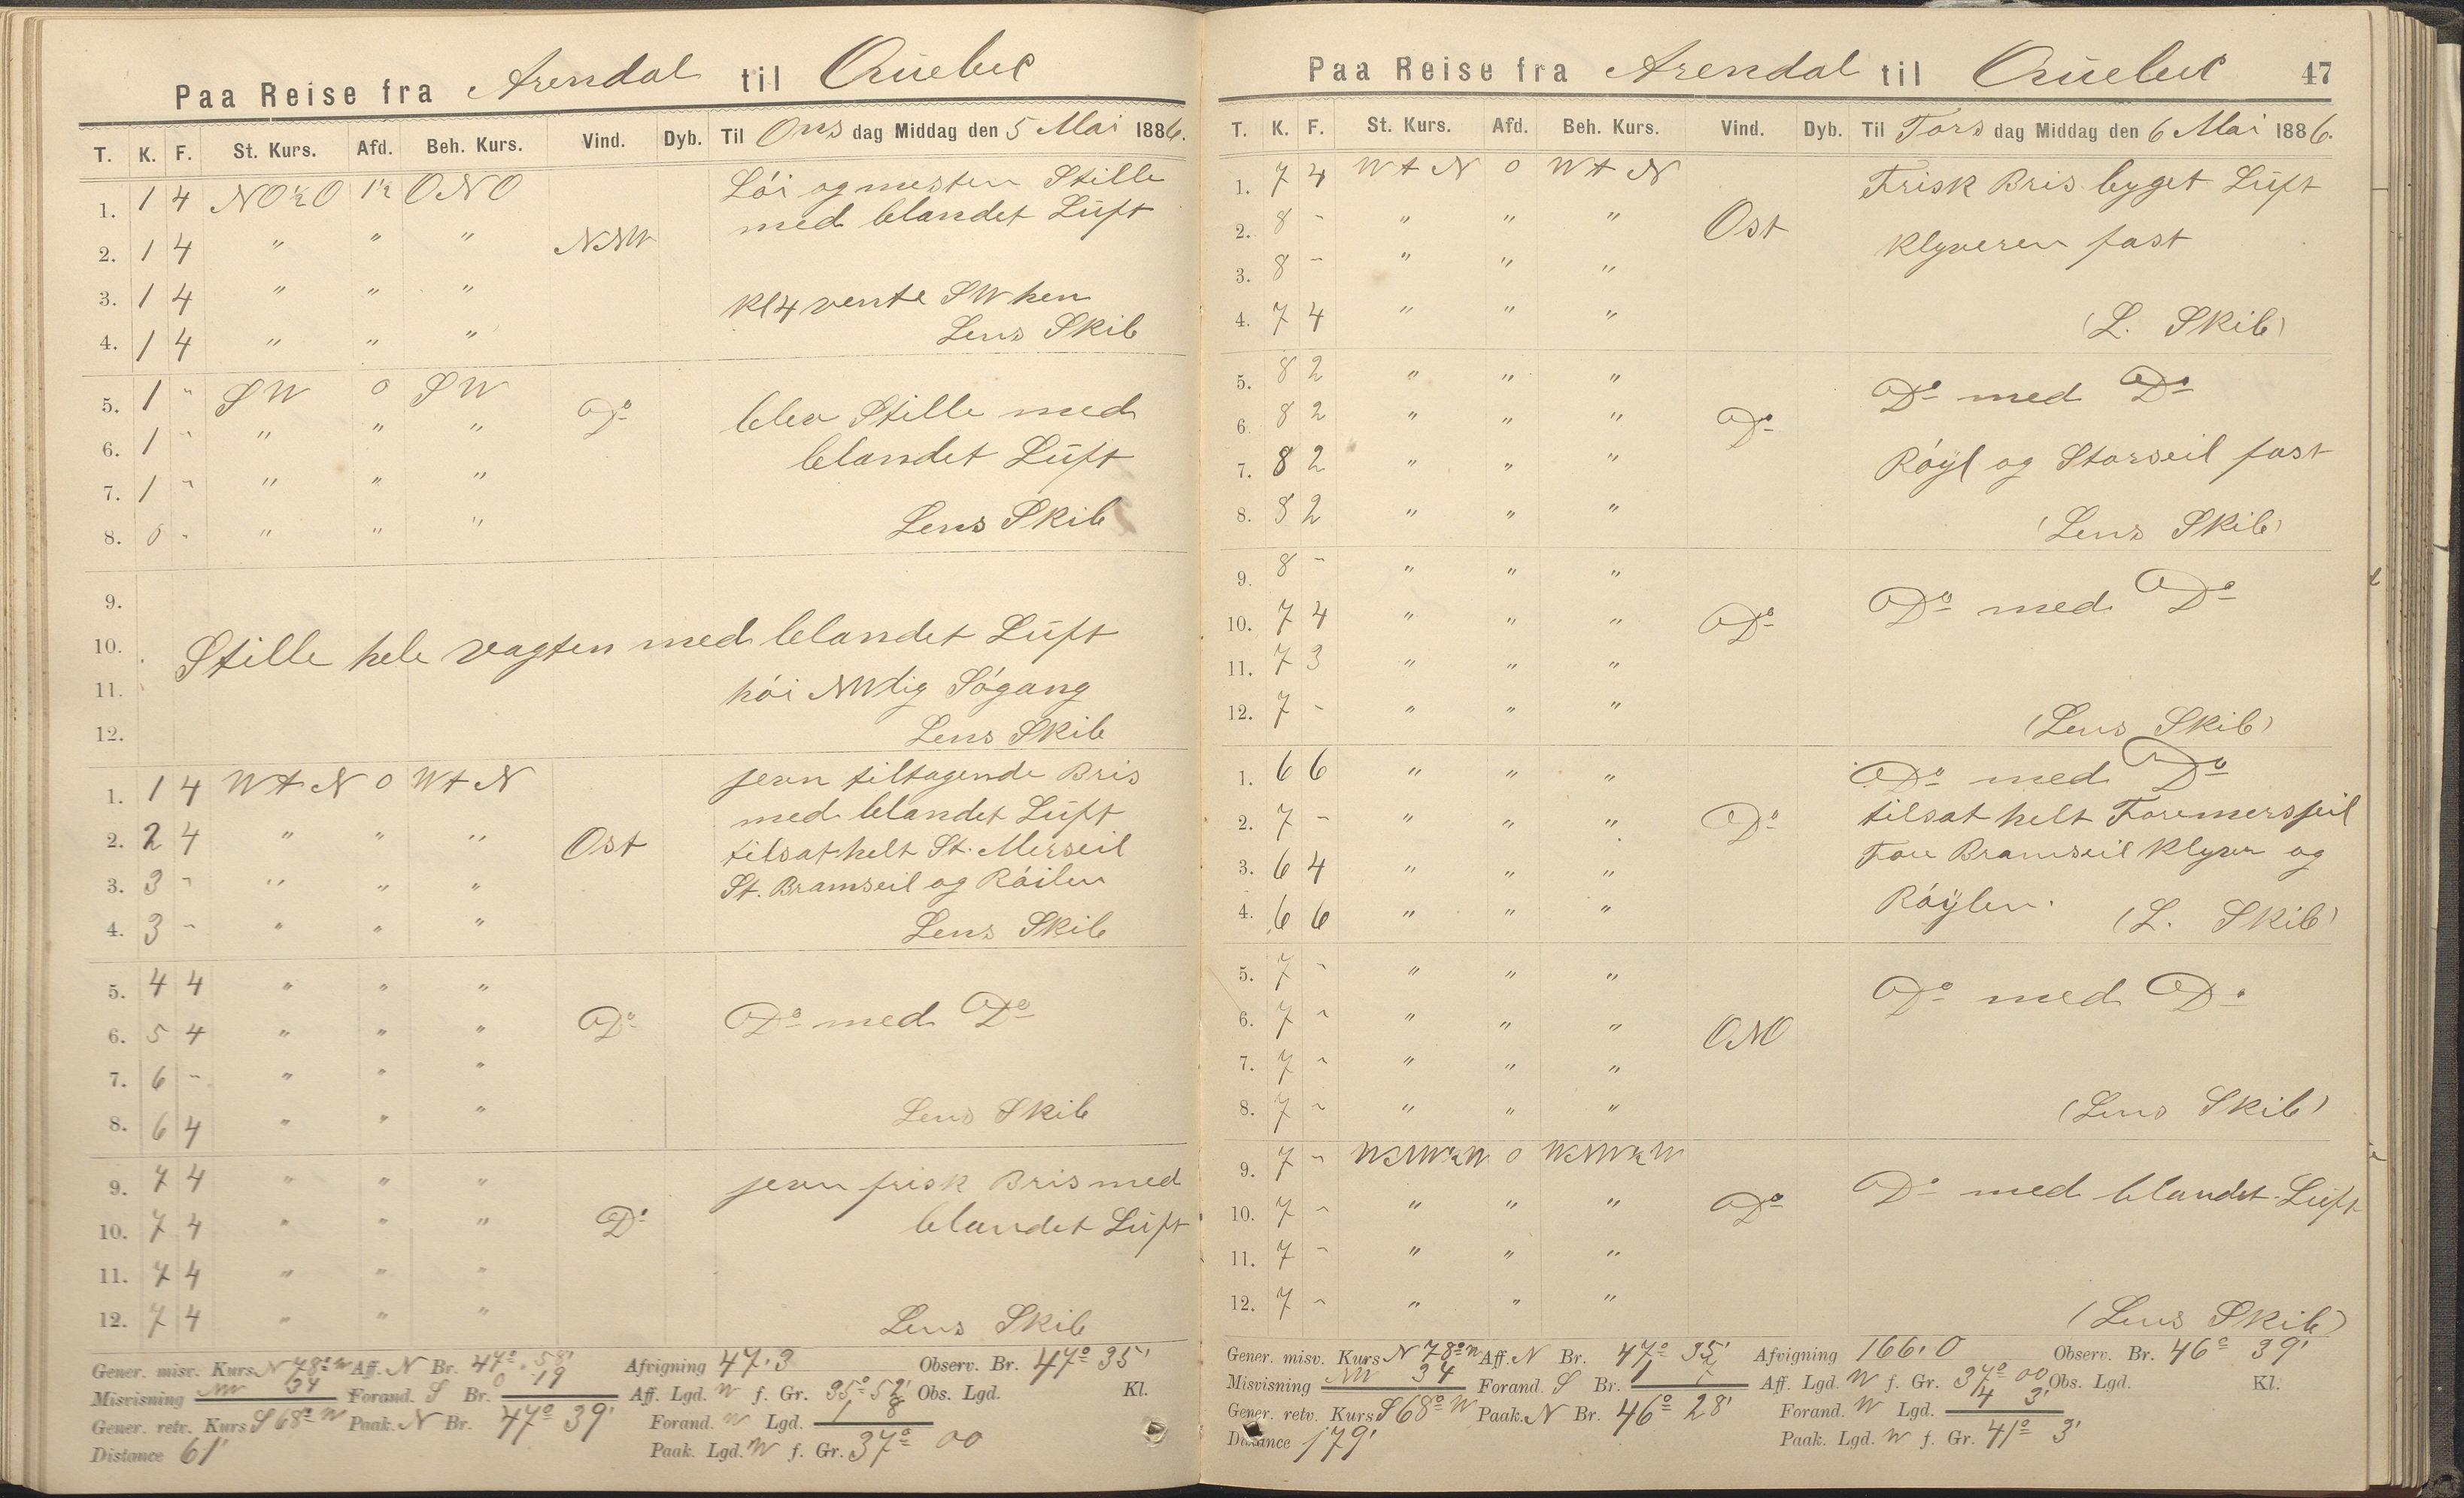 Paa Reise fra Arendal til Quebec
T. K. F. St. Kurs. Afd. Beh. Kurs. Vind. Dyb. Til Ons dag Middag den 5 Mai 1886.
1. 1 4 NO½O 1½ ONO Löi og nesten Stille
med blandet Luft
2. 1 4 " " " NNW
3. 1 4 " " " Kl 4 vente SW hen
4. 1 4 " " " Lens Skib
5. 1 " SW 0 SW Do blev Stille med
6. 1 " " " " blandet Luft
7. 1 " " " "
8. 0 " " " " Lens Skib
9.
10. Stille hele vagten med blandet Luft
11. höi NWlig Sögang
12. Lens Skib
1. 1 4 W t N 0 W t N jevn tiltagende Bris
med blandet Luft
2. 2 4 " " " Ost tilsat helt St. Merseil
3. 3 " " " " St. Bramseil og Röilen
4. 3 " " " " Lens Skib
5. 4 4 " " "
6. 5 4 " " " Do Do med Do
7. 6 - " " "
8. 6 4 " " " Lens Skib
9. 7 4 " " " jevn frisk Bris med
10. 7 4 " " " Do blandet Luft
11. 7 4 " " "
12. 7 4 " " " Lens Skib
Gener. misv. Kurs N 78° W Aff. N Br. 47° 58' Afvigning 47,3 Observ. Br. 47° 35'
Misvisning NW 34 Forand. S Br. 0 19 Aff. Lgd. W f. Gr. 35° 52' Obs. Lgd. Kl.
Gener. retv. Kurs S 68° W Paak. N Br. 47° 39' Forand. W Lgd. 1 8
Distance 61' Paak. Lgd. W f. Gr. 37° 00
Paa Reise fra Arendal til Quebec 47
T. K. F. St. Kurs. Afd. Beh. Kurs. Vind. Dyb. Til Tors dag Middag den 6 Mai 1886.
1. 7 4 W t N 0 W t N Frisk Bris byget Luft
2. 8 - " " " Ost Klyveren fast
3. 8 - " " "
4. 7 4 " " " (L. Skib)
5. 8 2 " " " Do med Do
6. 8 2 " " " Do
7. 8 2 " " " Röyl og Storseil fast
8. 8 2 " " " (Lens Skib)
9. 8 - " " "
10. 7 4 " " " Do Do med Do
11. 7 3 " " "
12. 7 - " " " (Lens Skib)
1. 6 6 " " " Do med Do
2. 7 - " " " Do tilsat helt Foremersseil
3. 6 4 " " " Fore Bramseil Klyver og
4. 6 6 " " " Röylen. (L. Skib)
5. 7 - " " " Do med Do
6. 7 - " " " ONO
7. 7 - " " "
8. 7 - " " " (Lens Skib)
9. 7 - WNW½W 0 WNW½W
10. 7 - " " " Do Do med blandet Luft
11. 7 - " " "
12. 7 - " " " (Lens Skib)
Gener. misv. Kurs N 78° W Aff. N Br. 47° 35' Afvigning 166,0 Observ. Br. 46° 39'
Misvisning NW 34 Forand. S Br. 1 Aff. Lgd. W f. Gr. 37° 00 Obs. Lgd. Kl.
Gener. retv. Kurs S 68° W Paak. N Br. 46° 28' Forand. W Lgd. 4 3'
Distance 179' Paak. Lgd. W f. Gr. 41° 3'